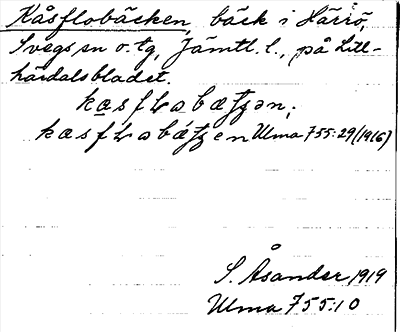 Kåsflobäcken, bäck i Härrö,
Svegs sn o. tg, Jämtl. l., på Lill-
härdalsbladet.
kasfɫabæʈʂən,
kæsfɫabǽʈʂen Ulma 755:29 (1916)
S. Åsander 1919
Ulma 755:10